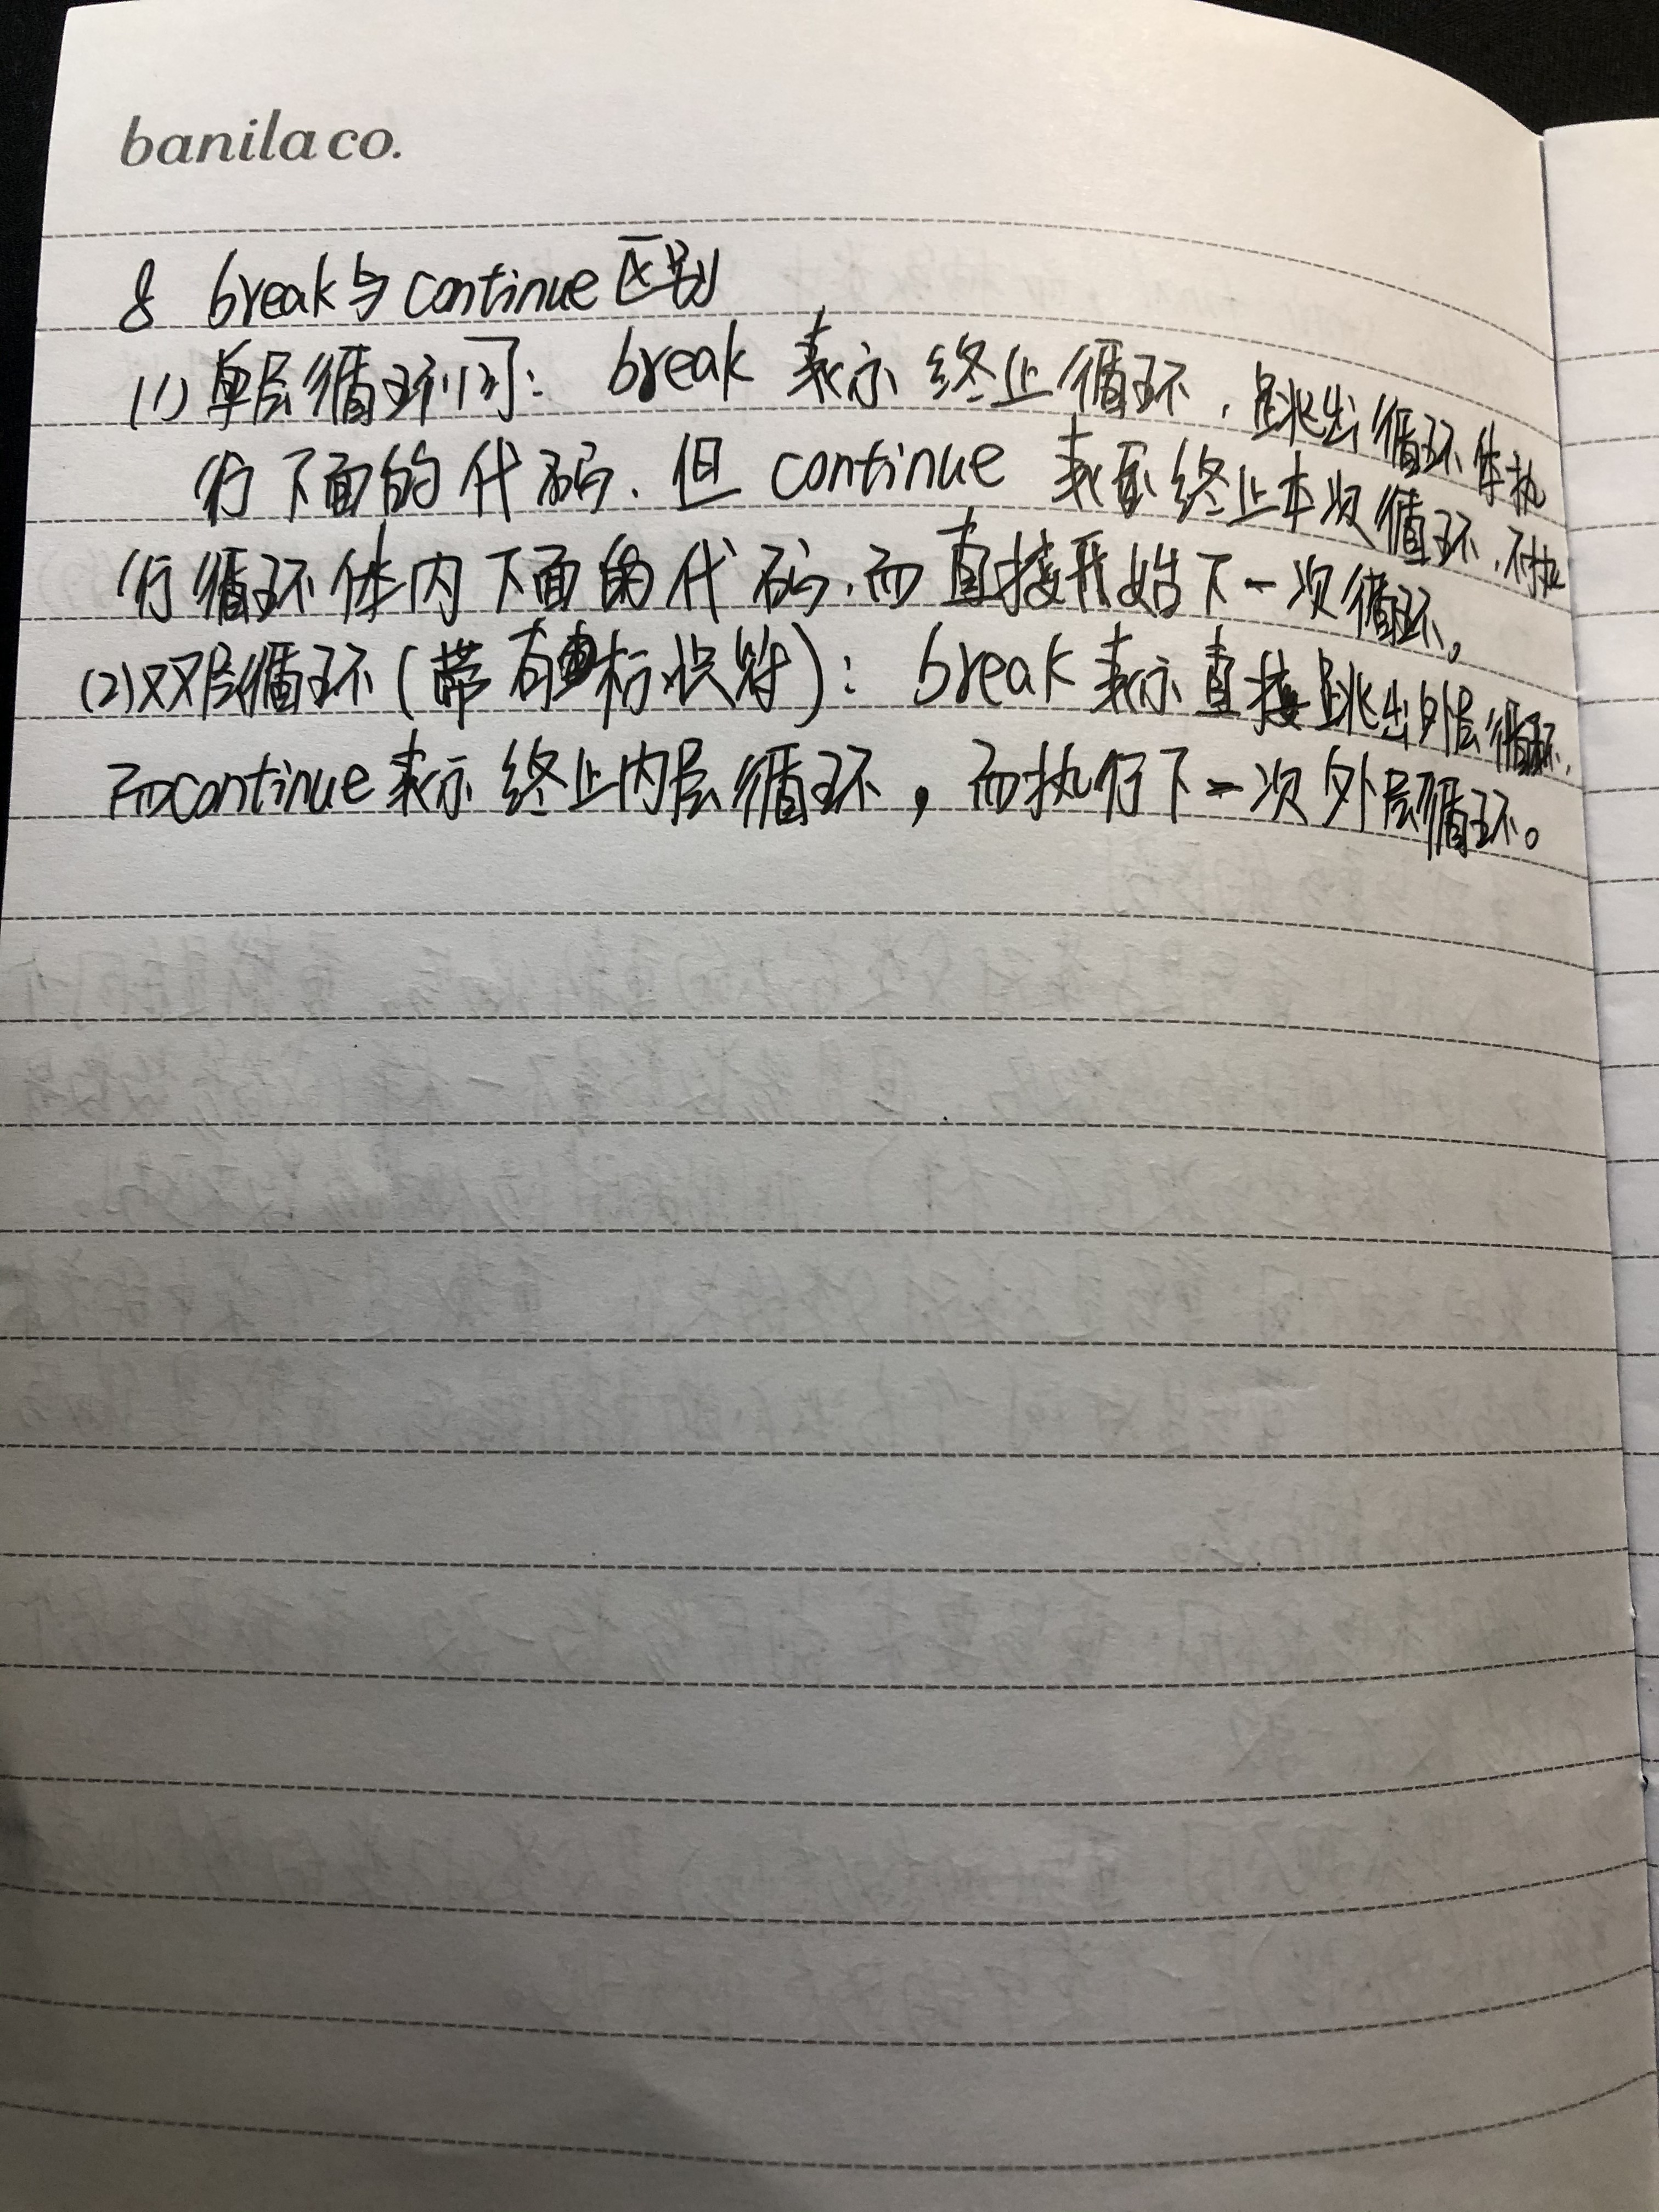 banila co.
8 break与continue区别
(1)单层循环间: break 表示终止循环，跳出循环体执
行下面的代码.但 continue 表示终止本次循环,不执
行循环体内下面的代码,而直接开始下一次循环。
(2)双层循环(带有标识符): break 表示直接跳出外层循环,
而continue表示终止内层循环，而执行下一次外层循环。